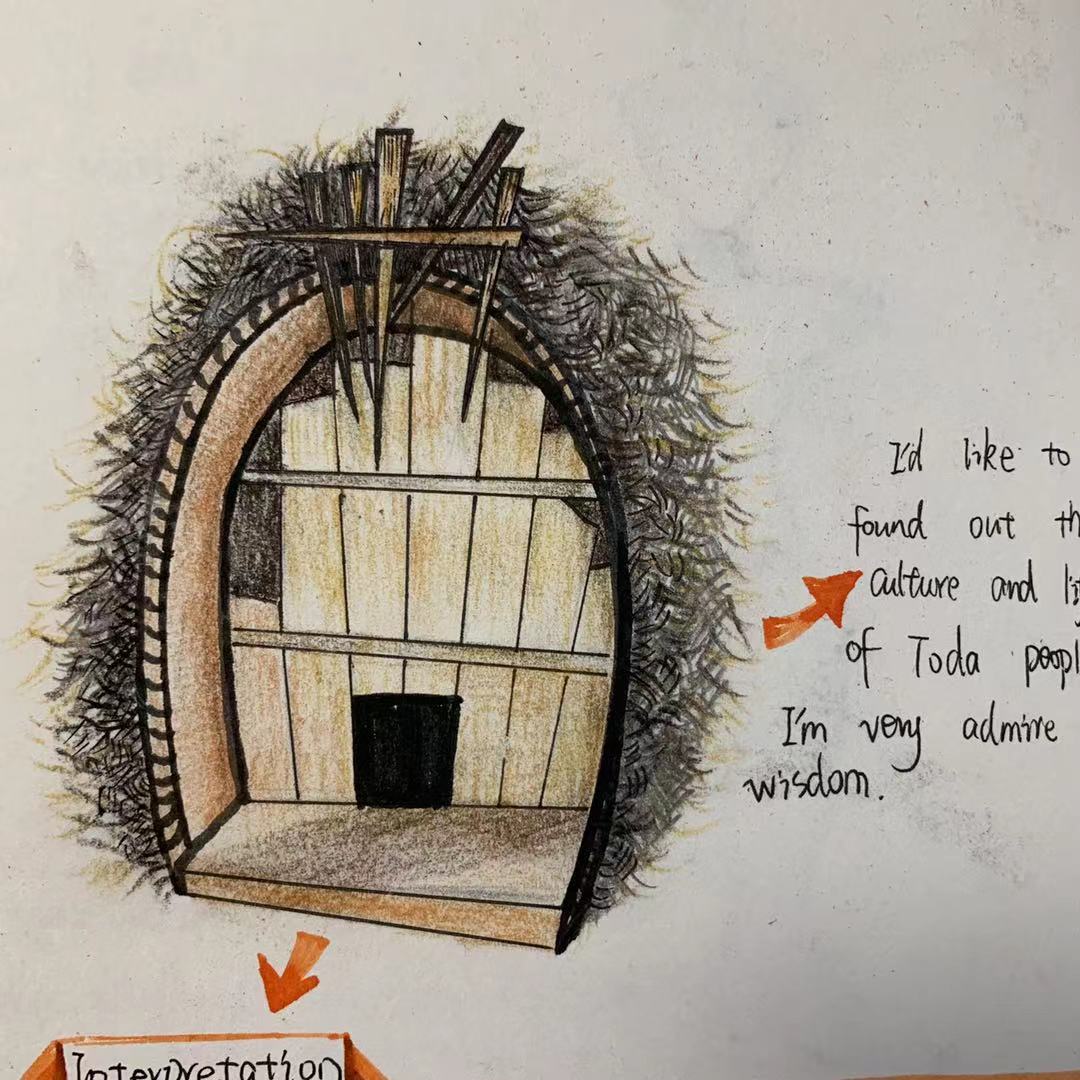 I'd like to
found out
culture and
of Toda
I'm very admire
wisdom.
Interpretation